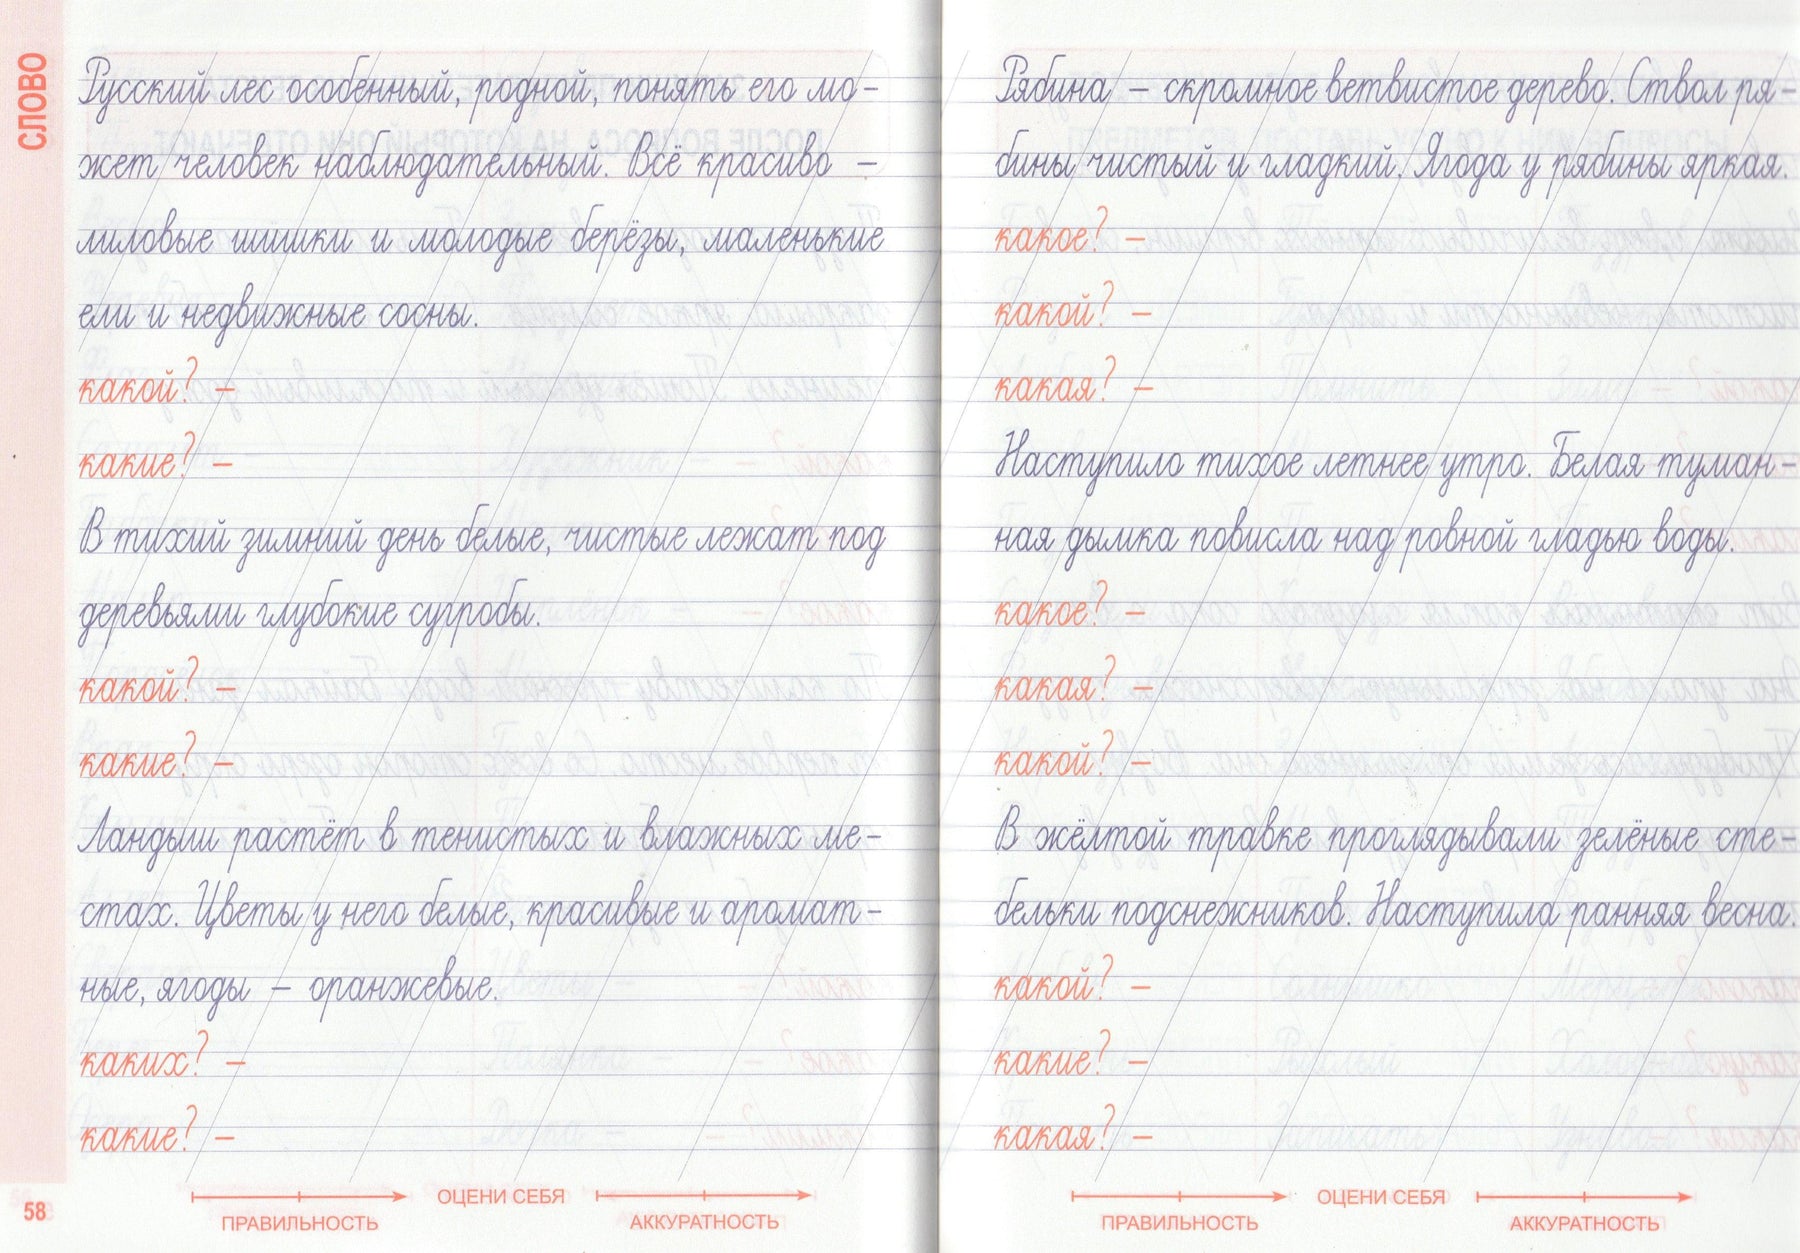 СЛОВО
Русский лес особенный, родной, понять его мо-
жет человек наблюдательный. Всё красиво -
лиловые шишки и молодые берёзы, маленькие
ели и недвижные сосны.
какой? -
какие? -
В тихий зимний день белые, чистые лежат под
деревьями глубокие сугробы.
какой? -
какие? -
Ландыш растёт в тенистых и влажных ме-
стах. Цветы у него белые, красивые и аромат-
ные, ягоды - оранжевые.
каких? -
какие? -
58
ПРАВИЛЬНОСТЬ
ОЦЕНИ СЕБЯ
АККУРАТНОСТЬ
Рябина - скромное ветвистое дерево. Ствол ря-
бины чистый и гладкий. Ягода у рябины яркая.
какое? -
какой? -
какая? -
Наступило тихое летнее утро. Белая туман-
ная дымка повисла над ровной гладью воды.
какое? -
какая? -
какой? -
В жёлтой травке проглядывали зелёные сте-
бельки подснежников. Наступила ранняя весна.
какой? -
какие? -
какая? -
ПРАВИЛЬНОСТЬ
ОЦЕНИ СЕБЯ
АККУРАТНОСТЬ